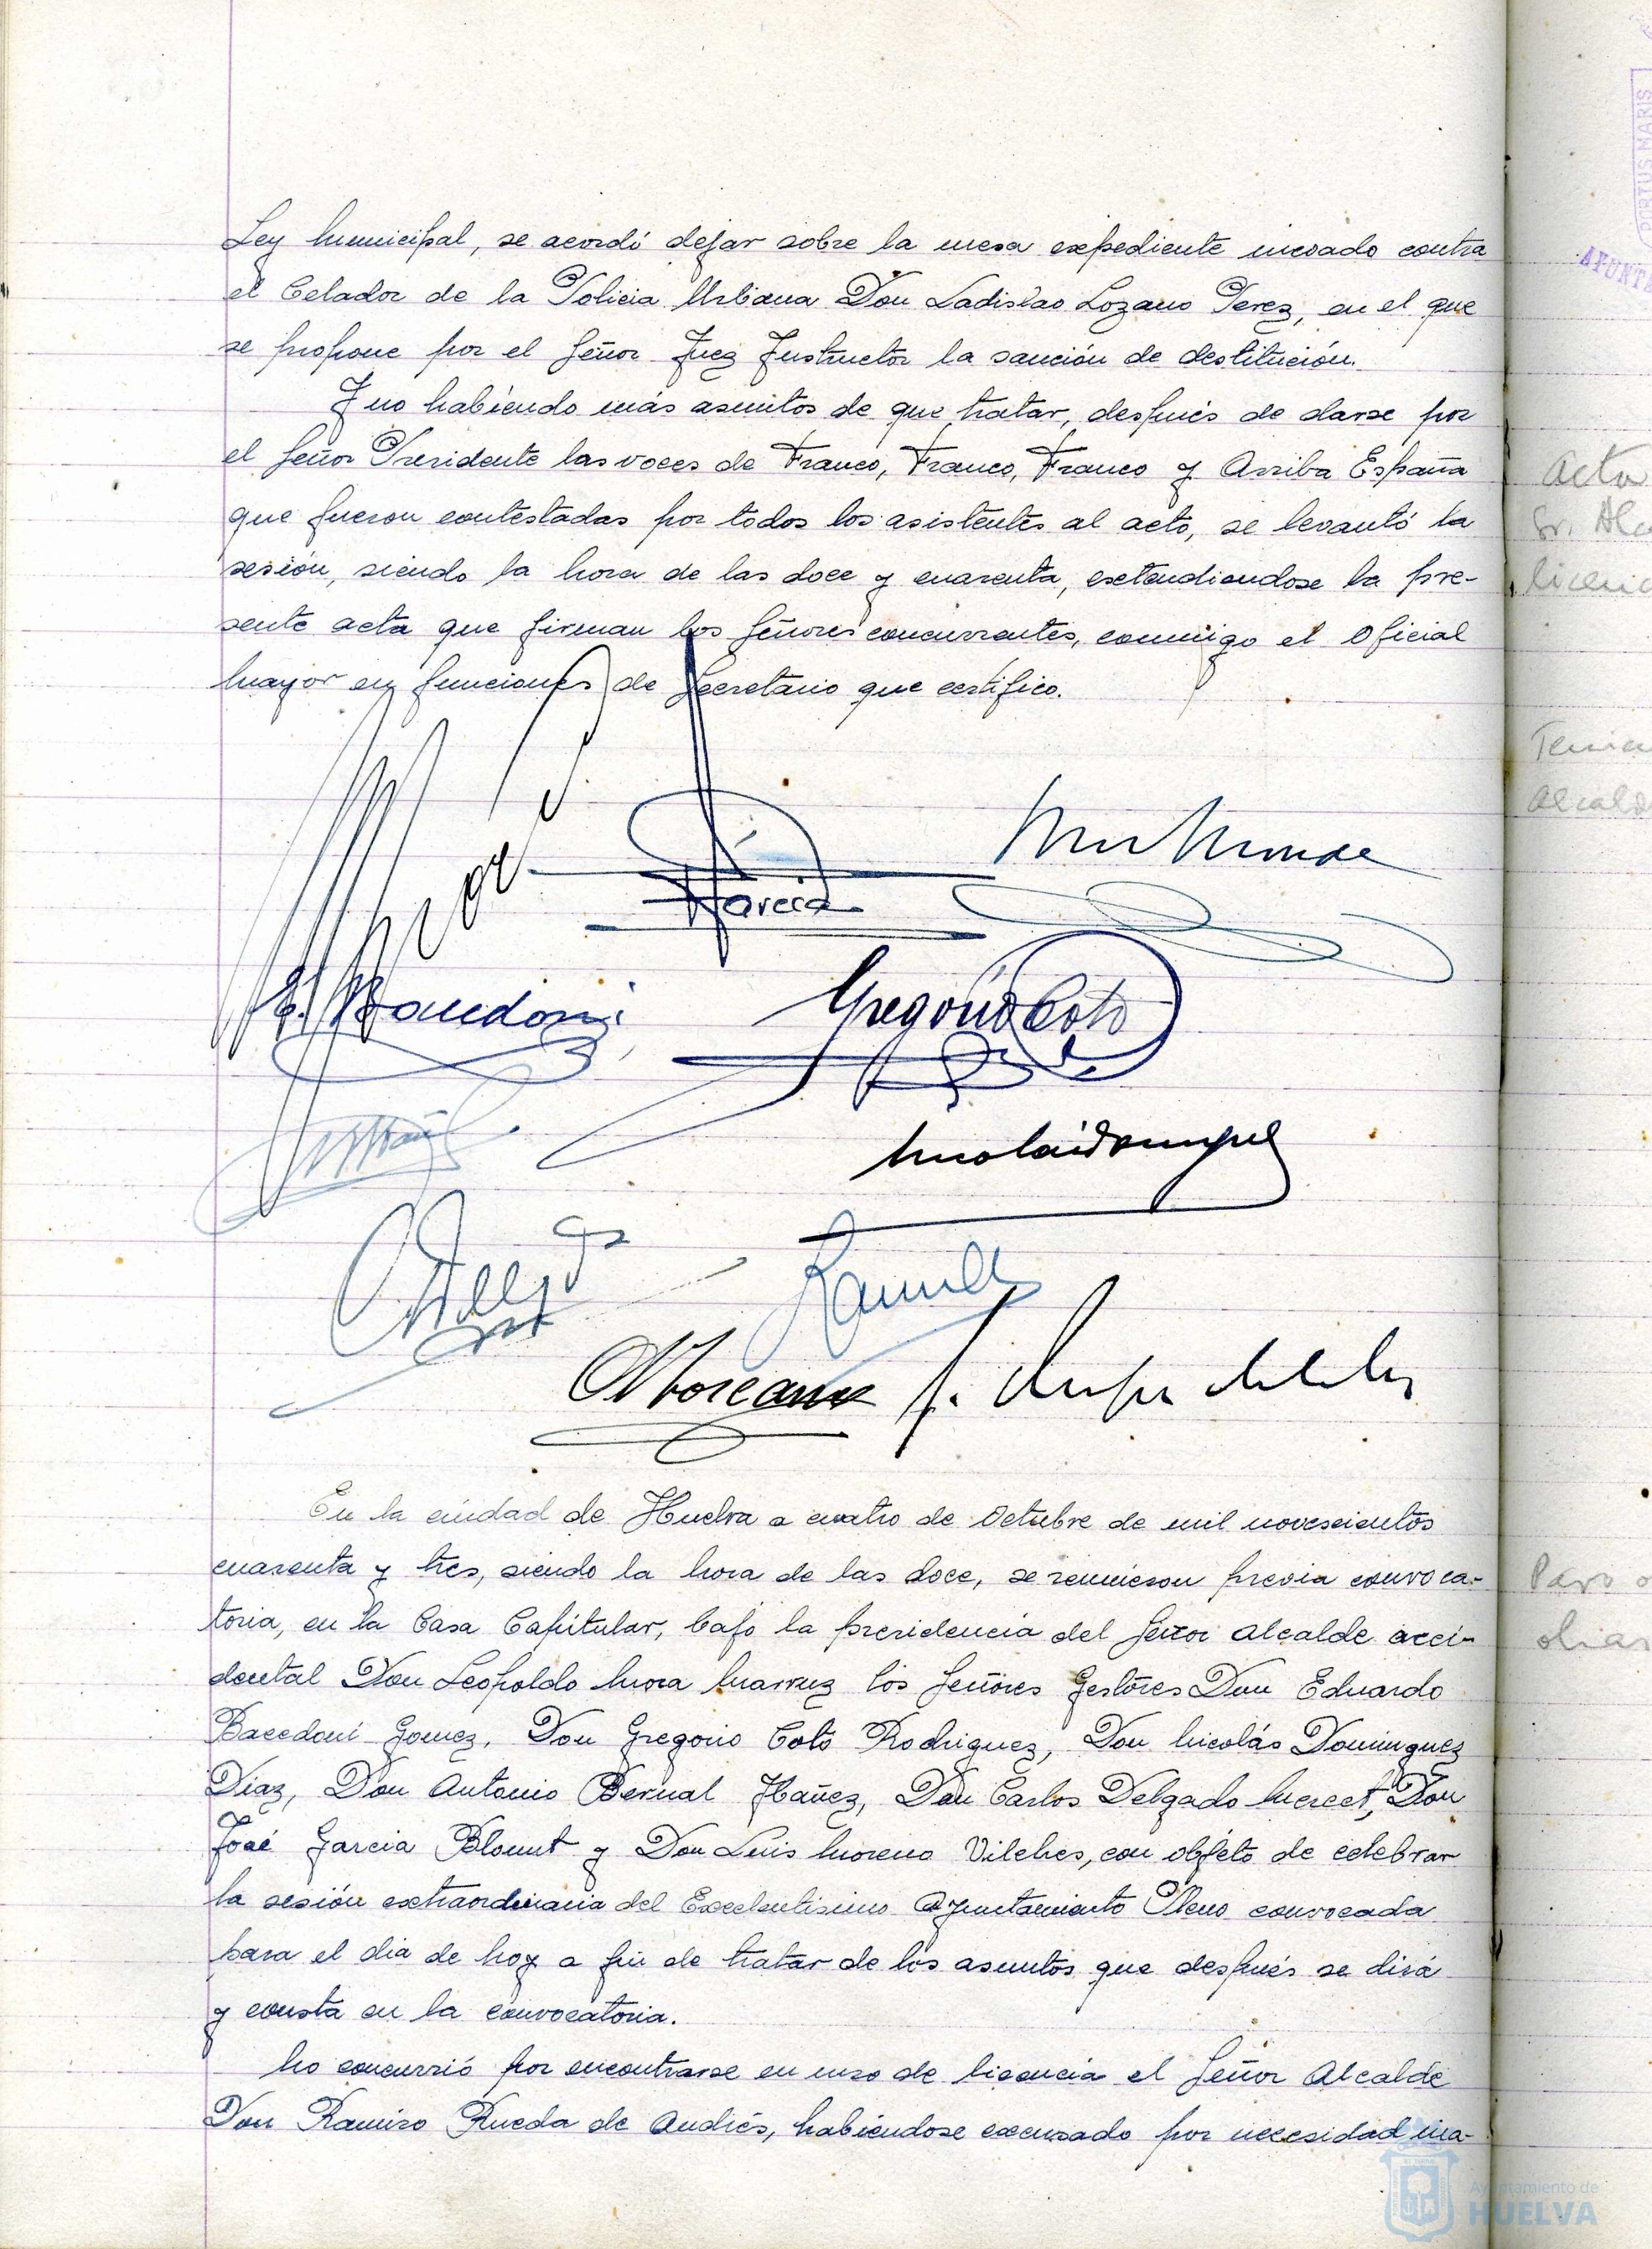 Ley Municipal, se acordó dejar sobre la mesa expediente incoado contra
el Celador de la Policia Urbana Don Ladislao Lozano Perez, en el que
se propone por el Señor Juez Instructor la sanción de destitución.
Y no habiendo más asuntos de que tratar, después de darse por
el Señor Presidente las voces de Franco, Franco, Franco y Arriba España
que fueron contestadas por todos los asistentes al acto, se levantó la
sesión, siendo la hora de las doce y cuarenta, extendiendose la pre-
sente acta que firman los Señores concurrentes, conmigo el Oficial
Mayor en funciones de Secretario que certifico.
Garcia
E. Bacedoni
Gregorio Coto
Nicolás Dominguez
En la ciudad de Huelva a cuatro de Octubre de mil novescientos
cuarenta y tres, siendo la hora de las doce, se reunieron previa convoca-
toria, en la Casa Capitular, bajo la presidencia del Señor Alcalde acci-
dental Don Leopoldo Mora los Señores Gestores Don Eduardo
Bacedoni Gomez, Don Gregorio Coto Rodriguez, Don Nicolás Dominguez
Diaz, Don Antonio Bernal Ibañez, Don Carlos Delgado Don
José Garcia Blount y Don Luis Moreno Vilches, con objeto de celebrar
la sesión extraordinaria del Excelentisimo Ayuntamiento Pleno convocada
para el dia de hoy a fin de tratar de los asuntos que después se dirá
y consta en la convocatoria.
No concurrió por encontrarse en uso de licencia el Señor Alcalde
Don Ramiro Rueda de Andrés, habiendose excusado por necesidad ina-
Acta
Sr. Alc
licenc
Tenien
Alcald
Paro o
obras
PORTUS MARIS
AYUNTA
Ayuntamiento de
HUELVA